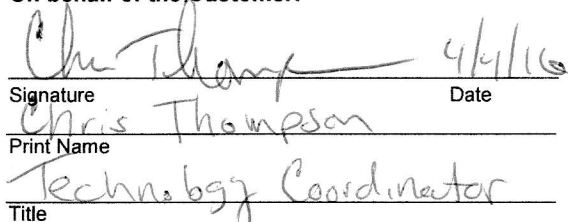 On behalf of the Customer:
Chris Thompson 4/4/16
Signature Date
Chris Thompson
Print Name
Technology Coordinator
Title